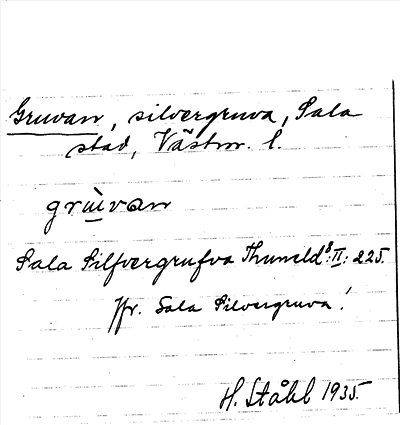 Gruvan, silvergruva, Sala
stad, Västm. l.
grùvan
Sala Silfvergrufva Thuneld⁸: II: 225.
Jfr. Sala Silvergruva!
H. Ståhl 1935.